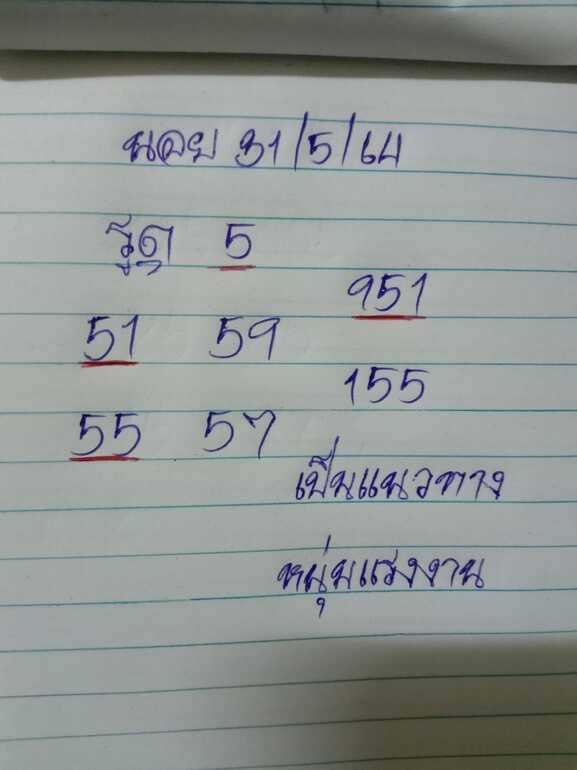 นอย 31/5/64
รูด 5
951
51 59
155
55 57
เป็นแนวทาง
หนุ่มแรงงาน